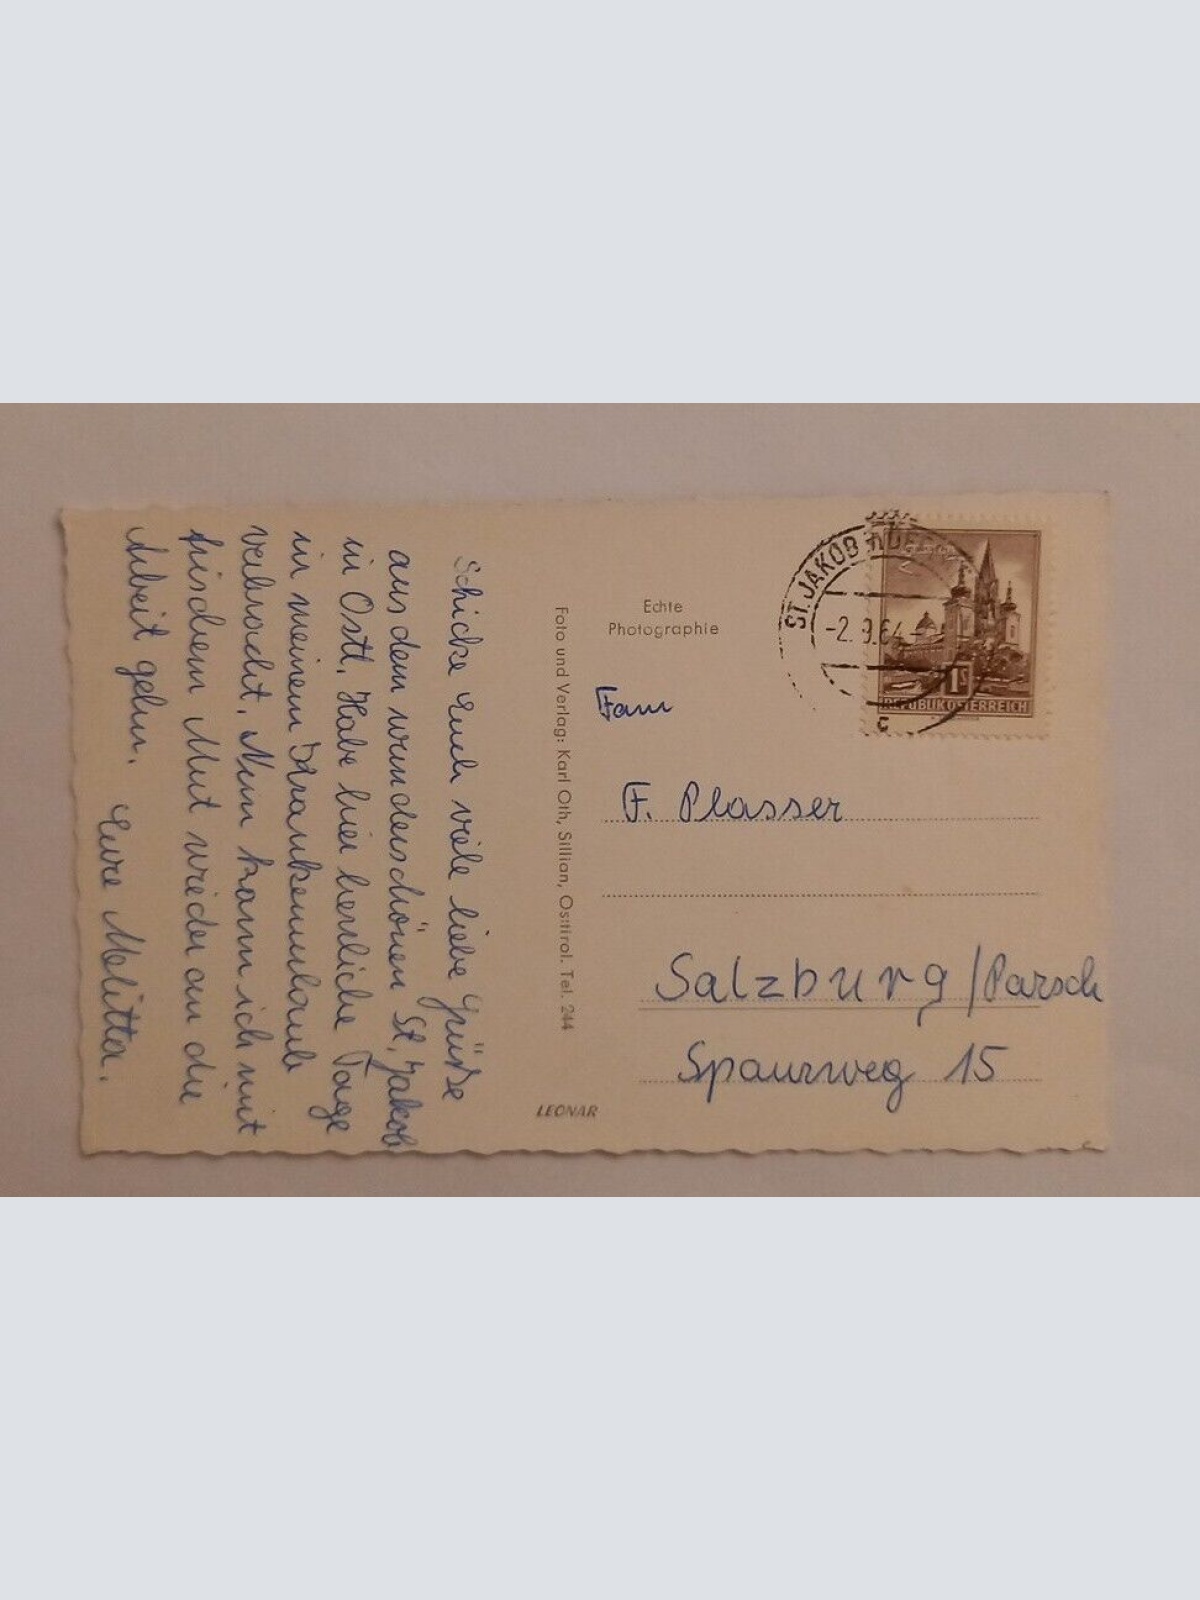 Schicke Euch viele liebe Grüße
aus dem wunderschönen St. Jakob
in Ostt. Habe hier herrliche Tage
in meinem Krankenurlaub
verbracht. Nun kann ich mit
frischem Mut wieder an die
Arbeit gehn.
Eure Melitta.
Foto und Verlag: Karl Oth, Sillian, Osttirol. Tel. 244
LEONAR
Echte
Photographie
ST. JAKOB IN DEF
-2.9.64-
c
1S
REPUBLIK ÖSTERREICH
Fam
F. Plasser
Salzburg/Parsch
Spaurweg 15